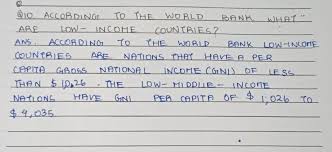 Q10. ACCORDING TO THE WORLD BANK WHAT
ARE LOW-INCOME COUNTRIES?
ANS. ACCORDING TO THE WORLD BANK LOW-INCOME
COUNTRIES ARE NATIONS THAT HAVE A PER
CAPITA GROSS NATIONAL INCOME (GNI) OF LESS
THAN $ 1026. THE LOW-MIDDLE-INCOME
NATIONS HAVE GNI PER CAPITA OF $ 1,026 TO
$ 4,035